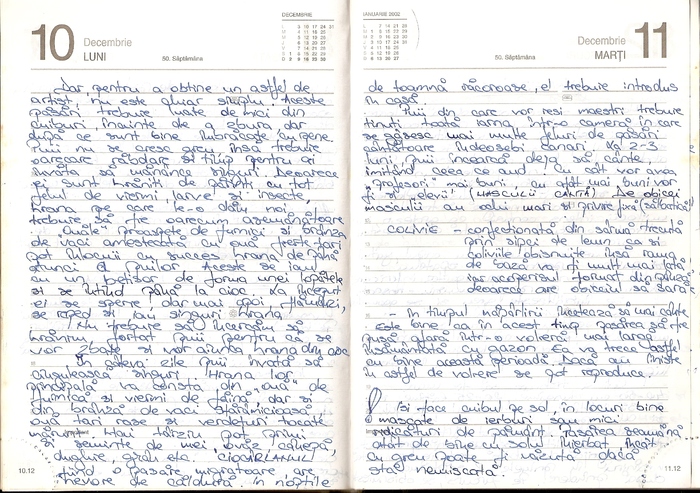 10
Decembrie
LUNI
50. Săptămâna
DECEMBRIE
Dar pentru a obține un astfel de
artist, nu este chiar simplu. Aceste
păsări trebuie luate de mici din
cuiburi, înainte de a zbura, dar
după ce sunt bine îmbrăcate cu pene.
Puii nu se cresc greu, însă trebuie
oarecare răbdare și timp pentru a-i
învăța să mănânce singuri. Deoarece
ei sunt hrăniți de părinți cu tot
felul de viermi, larve și insecte
hrana pe care le-o dăm noi
trebuie să fie oarecum asemănătoare.
"Ouăle" proaspete de furnici și brânza
de vaci amestecată cu ouă fierte tari
pot înlocui cu succes hrana de până
atunci a puilor. Aceste se iau
cu un bețișor de forma unei lopățele
și se întind până la cioc. La început
ei se sperie, dar mai apoi, flămânzi,
se reped și iau singuri hrana
Nu trebuie să încercăm să
hrănim forțat puii pentru că se
vor zbate și vor arunca hrana din cioc
În câteva zile puii învață să
ciugulească singuri. Hrana lor
principală va consta din "ouă" de
furnică și viermi de făină, dar și
din brânză de vaci sfărâmicioasă,
ouă rase și verdețuri tocate
mărunt. Mai târziu pot primi
și semințe de mei, cânepă,
dughie, grâu etc. CIOCÂRLANUL
fiind o pasăre migratoare are
nevoie de căldură. În nopțile
10.12
IANUARIE 2002
50. Săptămâna
Decembrie
MARȚI
11
de toamnă răcoroase, el trebuie introdus
în casă.
Puii din care vor ieși maeștri trebuie
ținuți toată iarna într-o cameră în care
se găsesc mai multe feluri de păsări
cântătoare îndeosebi canari. La 2-3
luni, puii încearcă deja să cânte,
imitând ceea ce aud. Cu cât vor avea
"profesori" mai buni cu atât mai buni vor
fi și elevii! (MASCULII CÂNTĂ). De obicei
masculii au ochi mari și privire fixă (sălbatică)
COLIVIE - confecționată din sârmă trecută
prin șipci de lemn ca și
coliviile obișnuite însă rama
de bază va fi mult mai lată
iar acoperișul format din pânză
deoarece are obiceiul să sară
- În timpul năpârlirii încetează să mai cânte
Este bine ca în acest timp pasărea să fie
pusă afară într-o volieră mai largă
însămânțată cu gazon. Ei trec astfel
cu bine această perioadă. Dacă au liniște
în astfel de voliere se pot reproduce.
Își face cuibul pe sol, în locuri bine
mascate de ierburi sau mici
ridicături de pământ. Pasărea seamănă
atât de bine cu solul înierbat încât
cu greu poate fi văzută dacă
stă nemișcată.
11.12